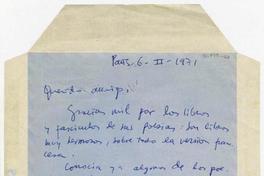 París. 6 - II - 1971
Querido amigo:
Gracias mil por los libros
y fascículos de sus poesías. Son libros
muy hermosos, sobre todo la versión fran-
cesa.
Conocía ya algunos de los poe-